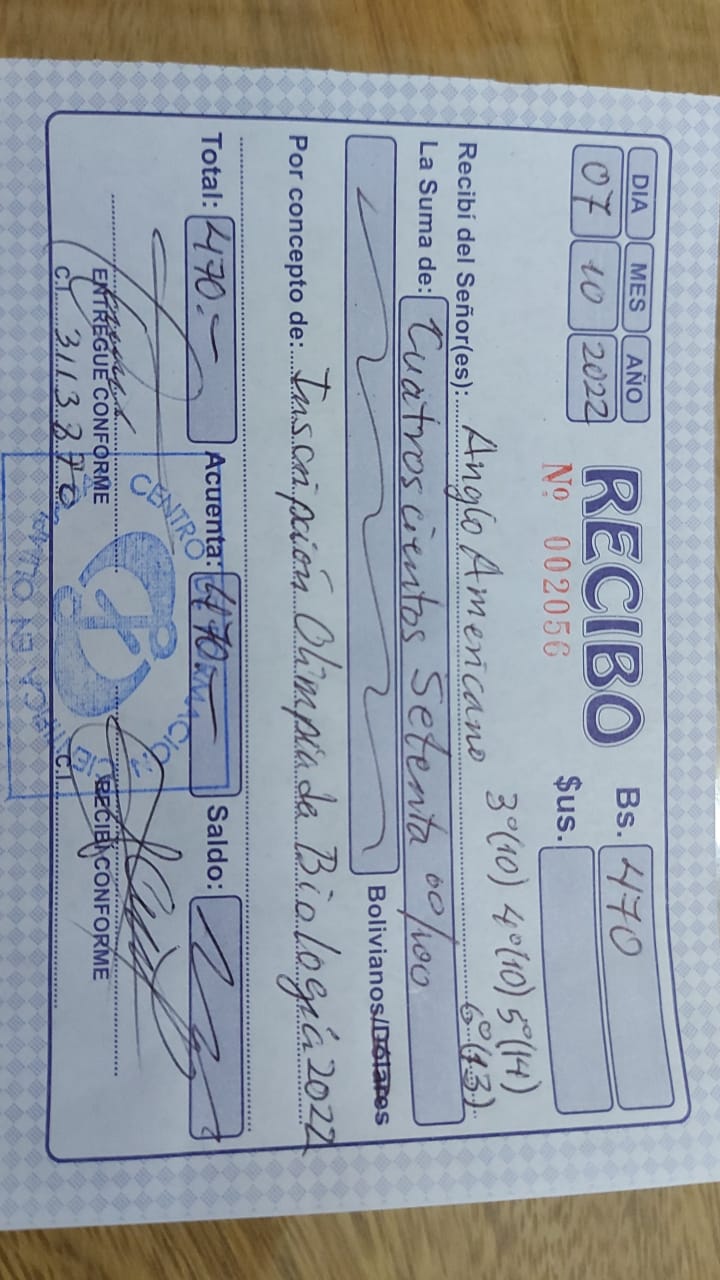 DIA MES AÑO
07 10 2022
RECIBO
Nº 002056
Bs. 470
$us.
3º(10) 4º(10) 5º(14)
6º(13)
Recibí del Señor(es): Anglo Americano
La Suma de: Cuatroscientos Setenta 00/100
Bolivianos/Dólares
Por concepto de: Inscripción Olimpiada Biología 2022
Total: 470.- Acuenta: 470.- Saldo:
ENTREGUE CONFORME
C.I. 3113270
RECIBI CONFORME
C.I.
CENTRO